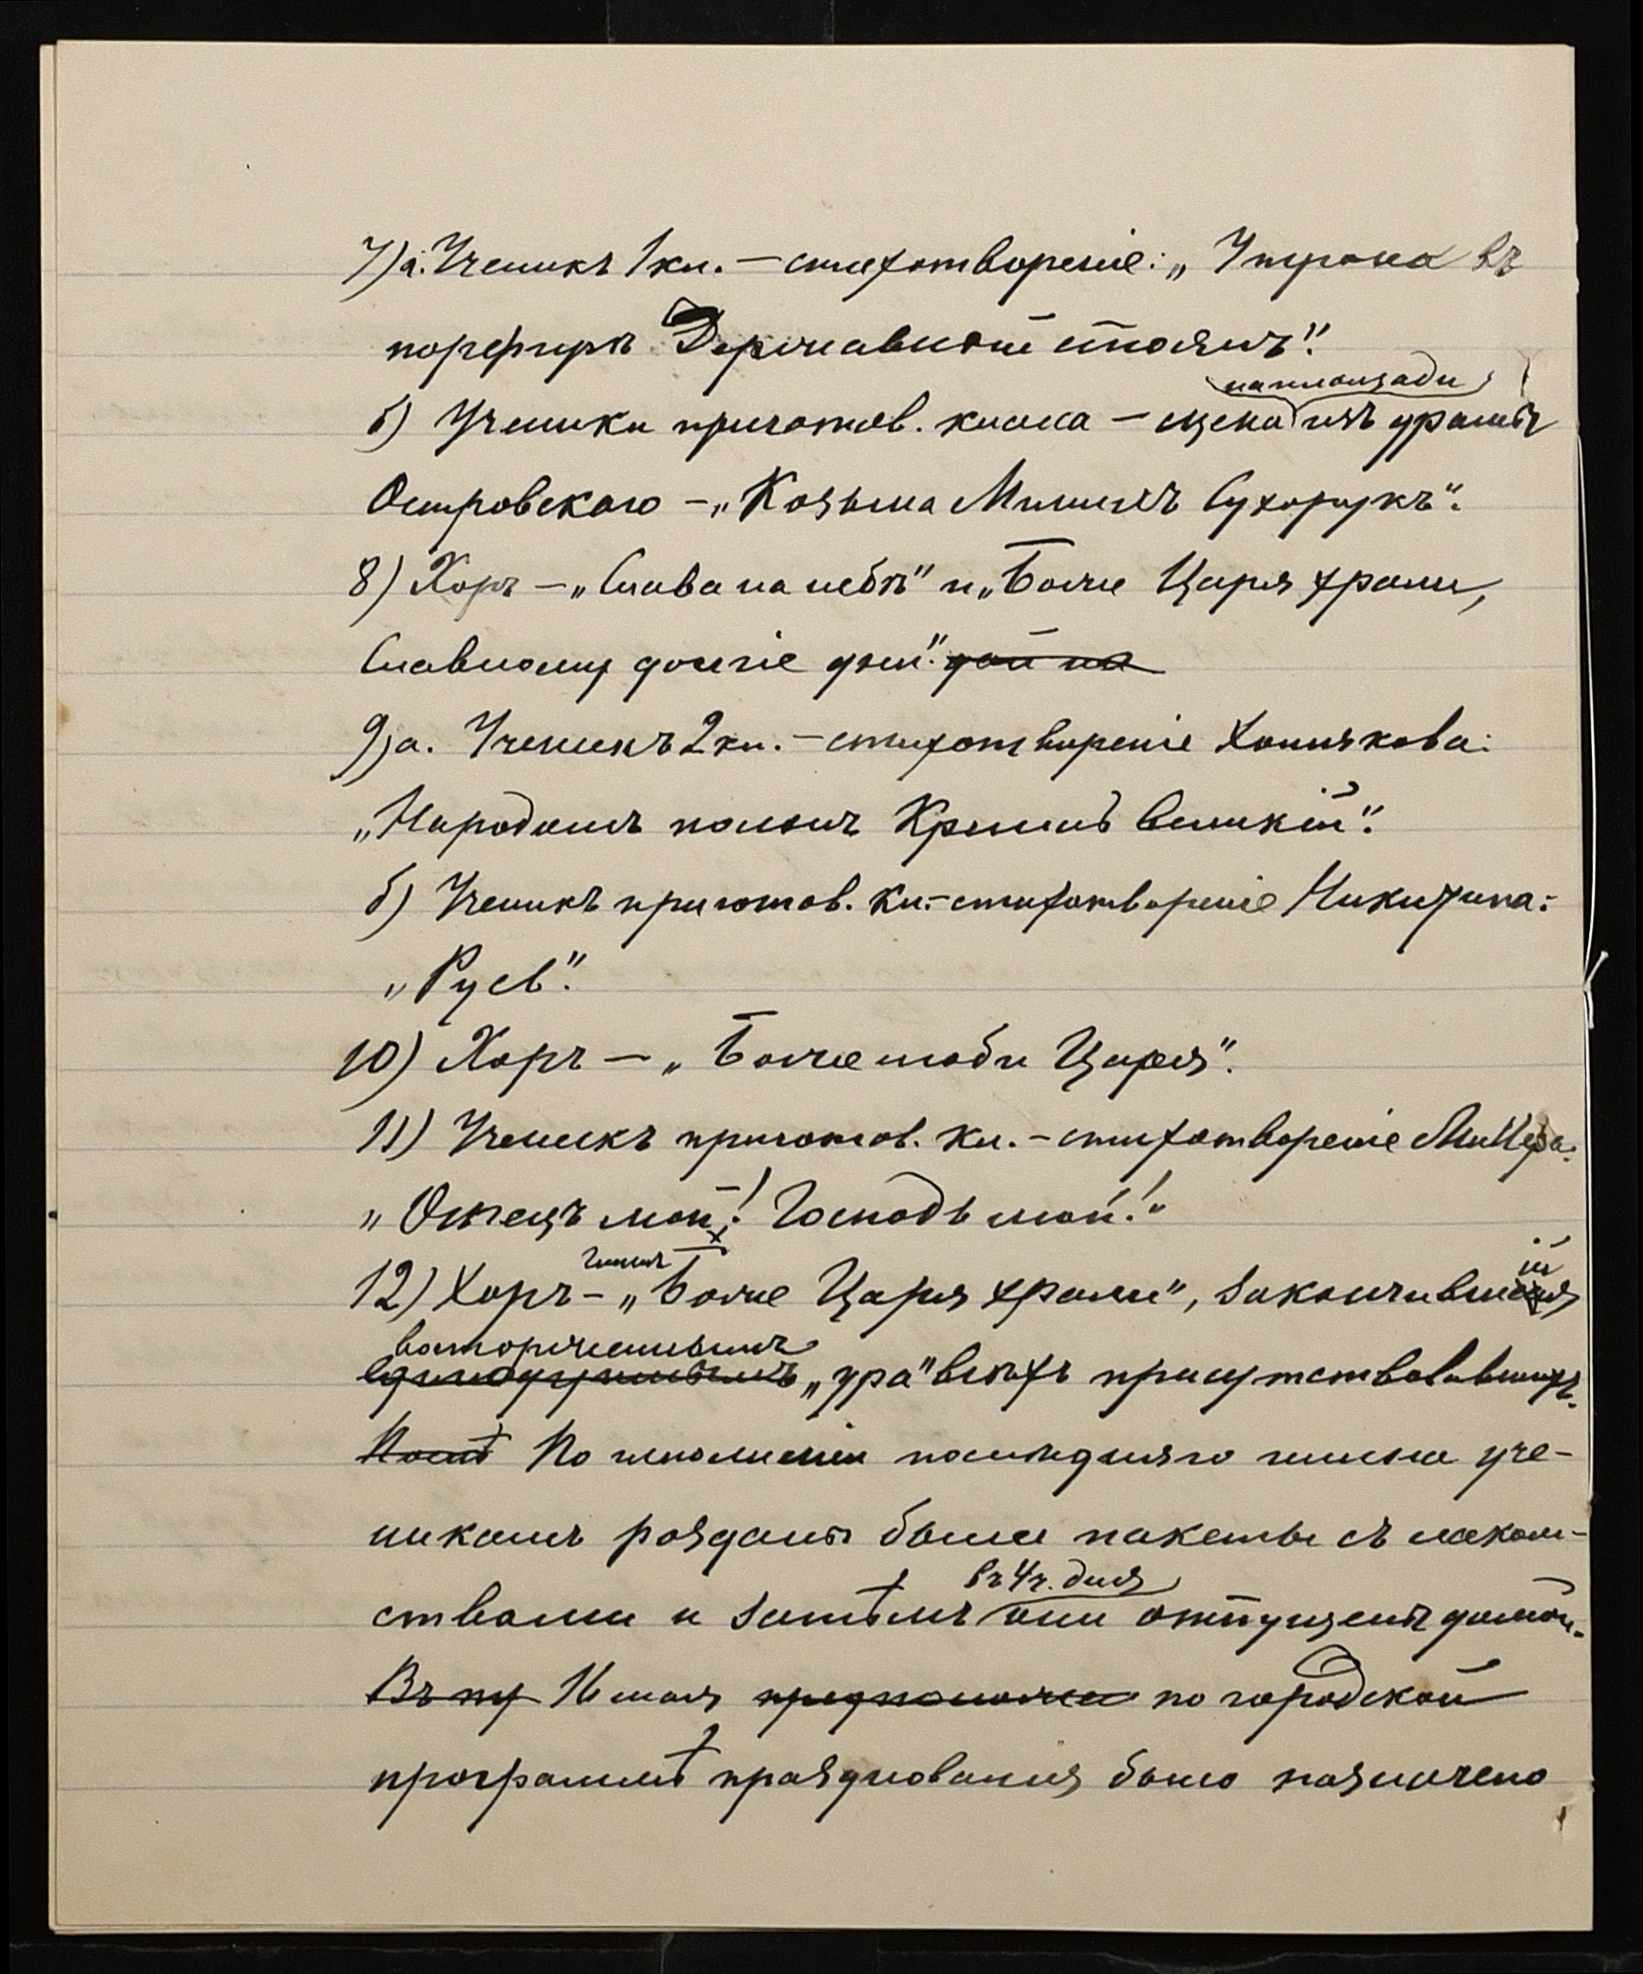 7) а. Ученикъ 1 кл. – стихотвореніе: „У трона въ
порфирѣ Державной стоялъ".
на площади
б) Ученики приготов. класса – сцена изъ драмы
Островскаго – „Козьма Мининъ Сухорукъ".
8) Хоръ – „Слава на небѣ" и „Боже Царя храни,
Славному долгіе дни". дай на
9) а. Ученикъ 2 кл. – стихотвореніе Хомякова:
„Народомъ полонъ Кремль великій".
б) Ученикъ приготов. кл. – стихотвореніе Никитина:
„Русь".
10) Хоръ – „Боже люби Царя".
11) Ученикъ приготов. кл. – стихотвореніе Миллера:
„Отецъ мой! Господь мой!"
гимнъ
12) Хоръ – „Боже Царя храни", закончившійся
восторженнымъ
единодушнымъ „ура" всѣхъ присутствовавшихъ.
Послѣ По исполненіи послѣдняго гимна уче-
никамъ розданы были пакеты съ лаком-
въ 4 ч. дня
ствами и затѣмъ они отпущены домой.
Въ пу 16 мая предположен по городской
программѣ празднованія было назначено